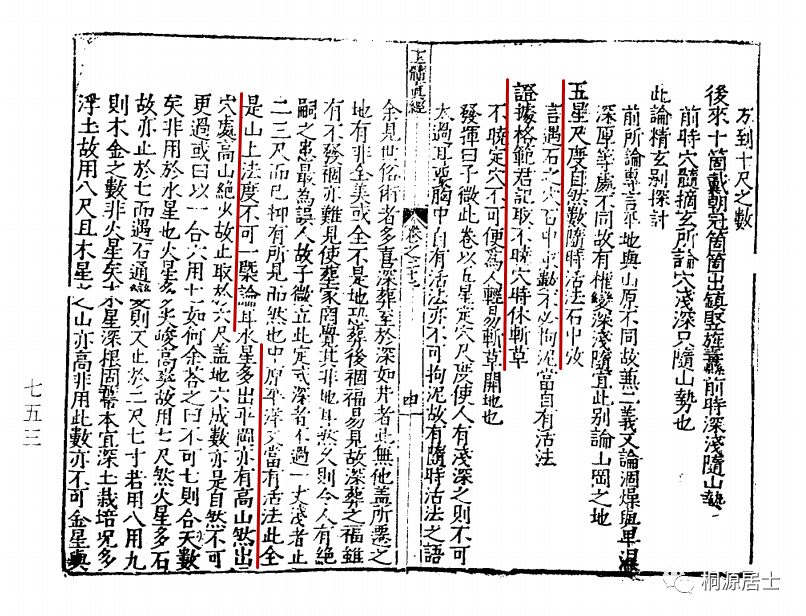 万到十尺之數
後來十箇戴朝冠箇箇出鎮堅旌纛前時深淺隨山㔟
前時穴髓摘玄所論穴淺深只隨山㔟也
此論精玄别探討
前所論專言平地與山原不同故兼二義又論涸燥與卑濕
深厚等處不同故有權變深淺隨宜此别論山岡之地
五星尺度自然數隨時活法石中攷
言遇石之穴石中之數不必拘泥當自有活法
證據格範君記取不曉穴時休斬草
不曉定穴不可便為人輕易斬草開地也
發揮曰子微此卷以五星定穴尺度使人有淺深之則不可
太過耳或胸中自有活法亦不可拘泥故有隨時活法之語
玉髓真經
卷之二十七
余見世俗術者多喜深葬至於深如井者此無他蓋所憑之
地有非全美或全不是地恐葬後禍福易見故深葬之福雖
有不發禍亦難見使葬家罔覺其非地耳然久則令人有絶
嗣之患最為誤人故子微立此定式深者不過一丈淺者止
二三尺而已抑有所見而然也中原平洋又當有活法此全
是山上法度不可一槩論耳水星多出平岡亦有高山然出
穴處高山絶火故止取於六尺蓋地六成數亦是自然不可
更過或曰以一合六用七如何余荅之曰不可七則合天數
矣非用於水星也火星多尖峻高𥪡故用七尺然火星多石
故亦止於七而遇石通變則又止於二尺七寸若用八用九
則木金之數非火星矣木星深根固蔕本宜深土栽培况多
浮土故用八尺且木星之山亦高非用此數亦不可金星與
七五三
桐源居士